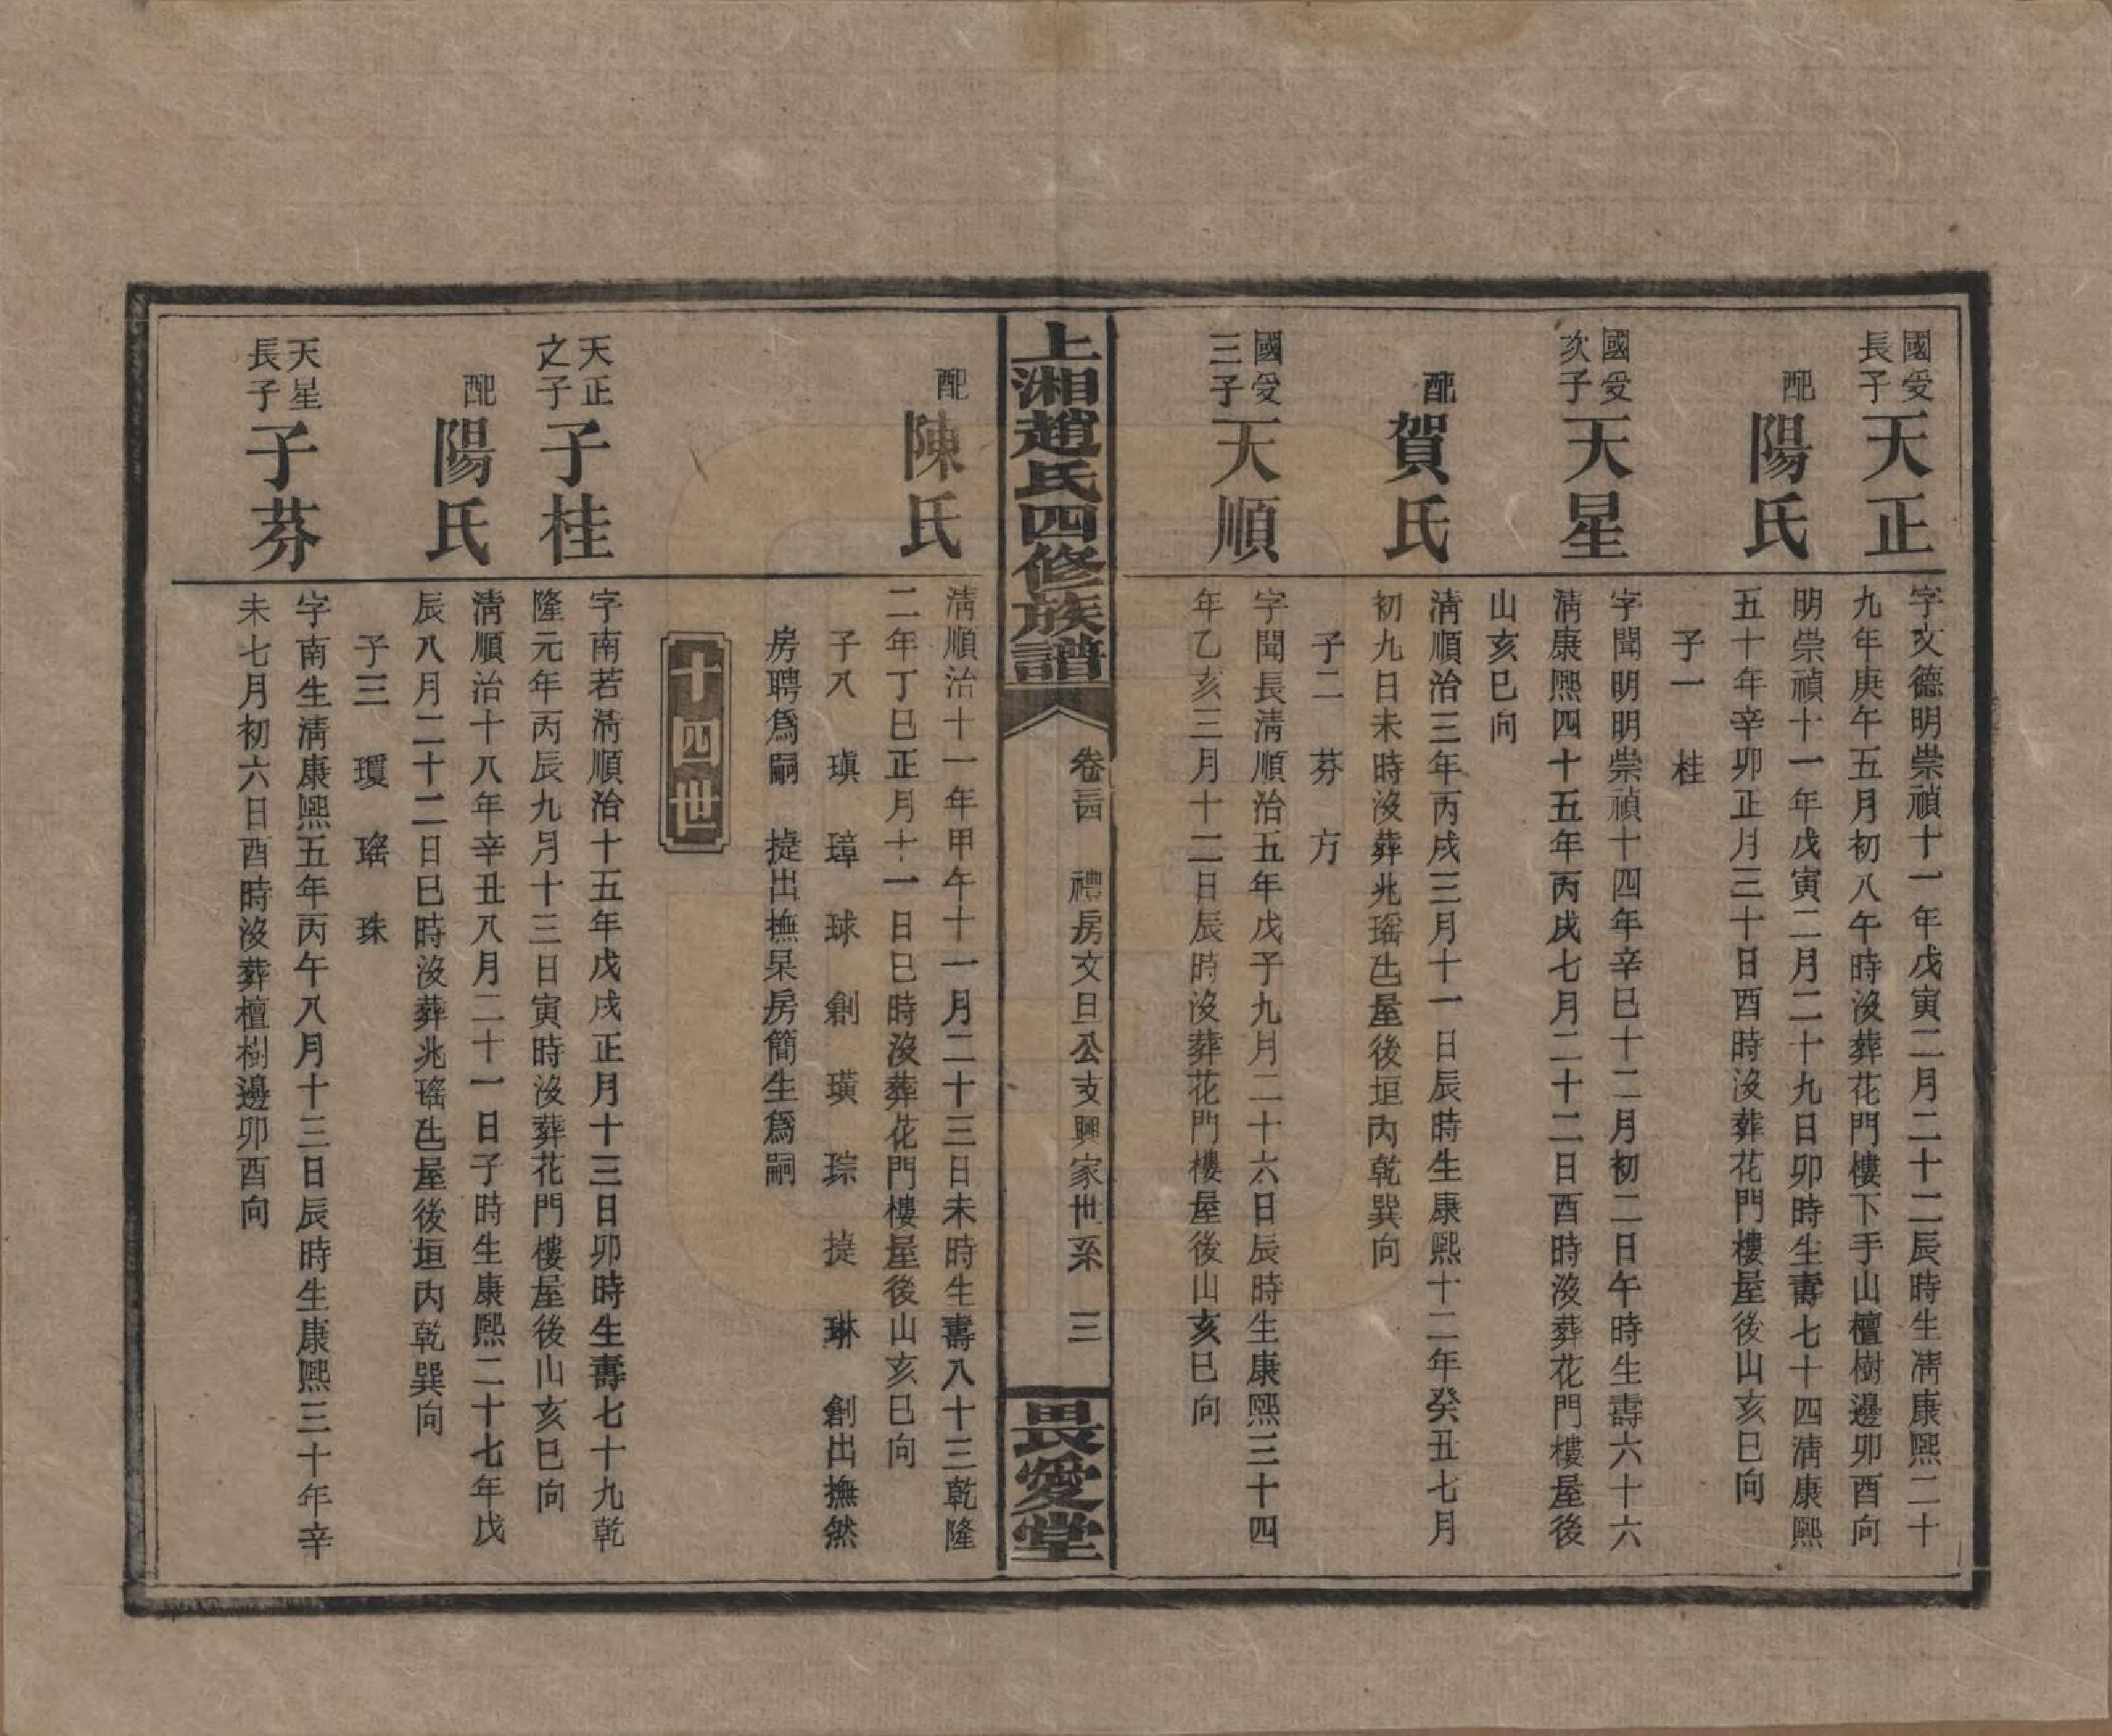 國受
長子
天正
字文德明崇禎十一年戊寅二月二十二辰時生清康熙二十
九年庚午五月初八午時沒葬花門樓下手山檀樹邊卯酉向
配
陽氏
明崇禎十一年戊寅二月二十九日卯時生壽七十四清康熙
五十年辛卯正月三十日酉時沒葬花門樓屋後山亥巳向
子一　桂
國受
次子
天星
字聞明明崇禎十四年辛巳十二月初二日午時生壽六十六
清康熙四十五年丙戌七月二十二日酉時沒葬花門樓屋後
山亥巳向
配
賀氏
清順治三年丙戌三月十一日辰時生康熙十二年癸丑七月
初九日未時沒葬兆瑶乜屋後垣內乾巽向
子二　芬　方
國受
三子
天順
字聞長清順治五年戊子九月二十六日辰時生康熙三十四
年乙亥三月十二日辰時沒葬花門樓屋後山亥巳向
上湘趙氏四修族譜
卷四　禮房文旦公支興家世系　三
畏愛堂
配
陳氏
清順治十一年甲午十一月二十三日未時生壽八十三乾隆
二年丁巳正月十一日巳時沒葬花門樓屋後山亥巳向
子八　瑱　璋　球　創　璜　琮　㨗　琳　創出撫然
房聘爲嗣　㨗出撫杲房簡生爲嗣
十四世
天正
之子
子桂
字南若清順治十五年戊戌正月十三日卯時生壽七十九乾
隆元年丙辰九月十三日寅時沒葬花門樓屋後山亥巳向
配
陽氏
清順治十八年辛丑八月二十一日子時生康熙二十七年戊
辰八月二十二日巳時沒葬兆瑶乜屋後垣內乾巽向
子三　瓊　瑤　珠
天星
長子
子芬
字南生清康熙五年丙午八月十三日辰時生康熙三十年辛
未七月初六日酉時沒葬檀樹邊卯酉向